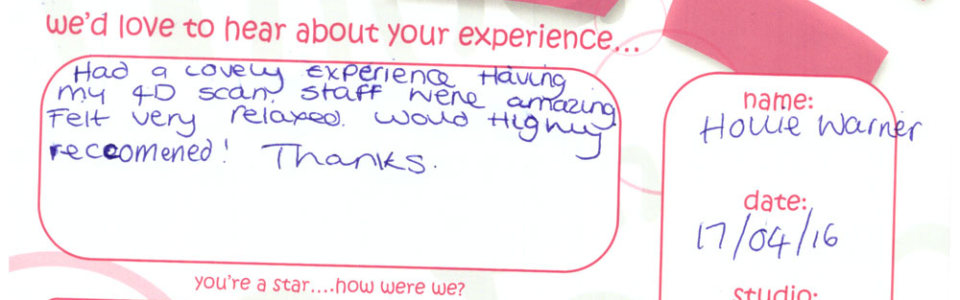 we'd love to hear about your experience...
Had a lovely experience Having
my 4D scan. staff were amazing
Felt very relaxed. would Highly
reccomened! Thanks.
name:
Hollie Warner
date:
17/04/16
studio:
you're a star....how were we?